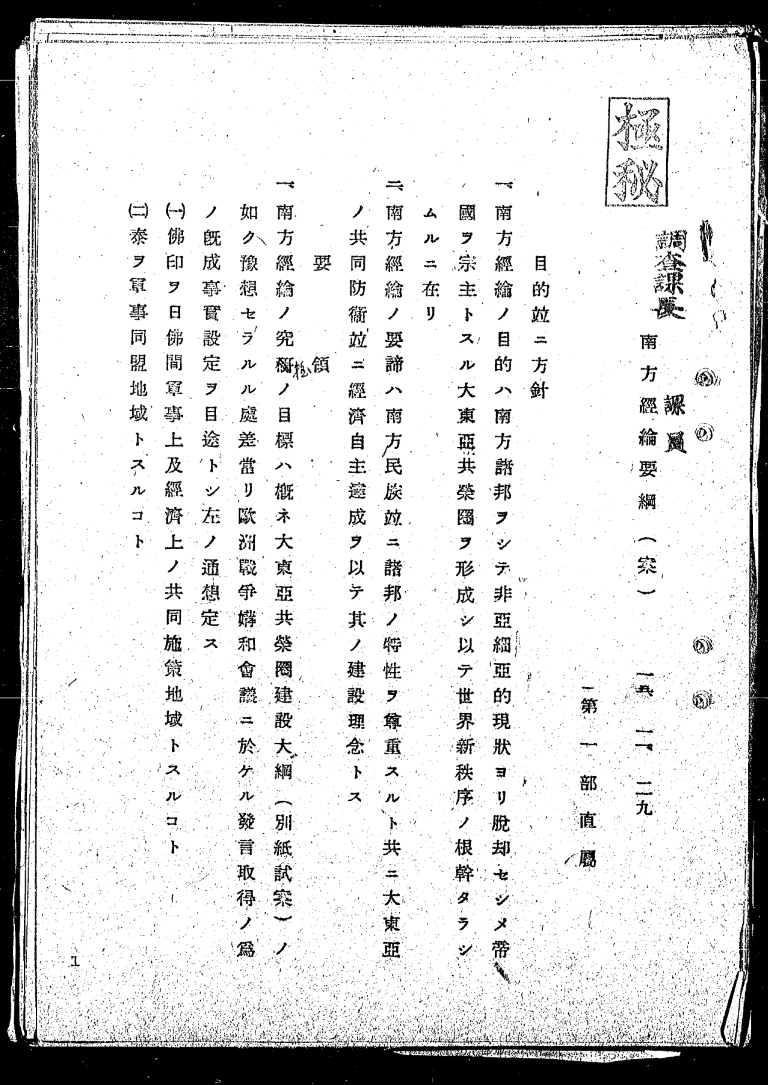 極秘
調査課長
課員
南方經綸要綱（案）　一五、一一、二九
第一部直屬
目的竝ニ方針
一、南方經綸ノ目的ハ南方諸邦ヲシテ非亞細亞的現狀ヨリ脫却セシメ帶
國ヲ宗主トスル大東亞共榮圈ヲ形成シ以テ世界新秩序ノ根幹タラシ
ムルニ在リ
二、南方經綸ノ要諦ハ南方民族竝ニ諸邦ノ特性ヲ尊重スルト共ニ大東亞
ノ共同防衞竝ニ經濟自主達成ヲ以テ其ノ建設理念トス
要領
一、南方經綸ノ究極ノ目標ハ槪ネ大東亞共榮圈建設大綱（別紙試案）ノ
如ク豫想セラルル處差當リ歐洲戰爭媾和會議ニ於ケル發言取得ノ爲
ノ旣成事實設定ヲ目途トシ左ノ通想定ス
㈠佛印ヲ日佛間軍事上及經濟上ノ共同施策地域トスルコト
㈡泰ヲ軍事同盟地域トスルコト
1